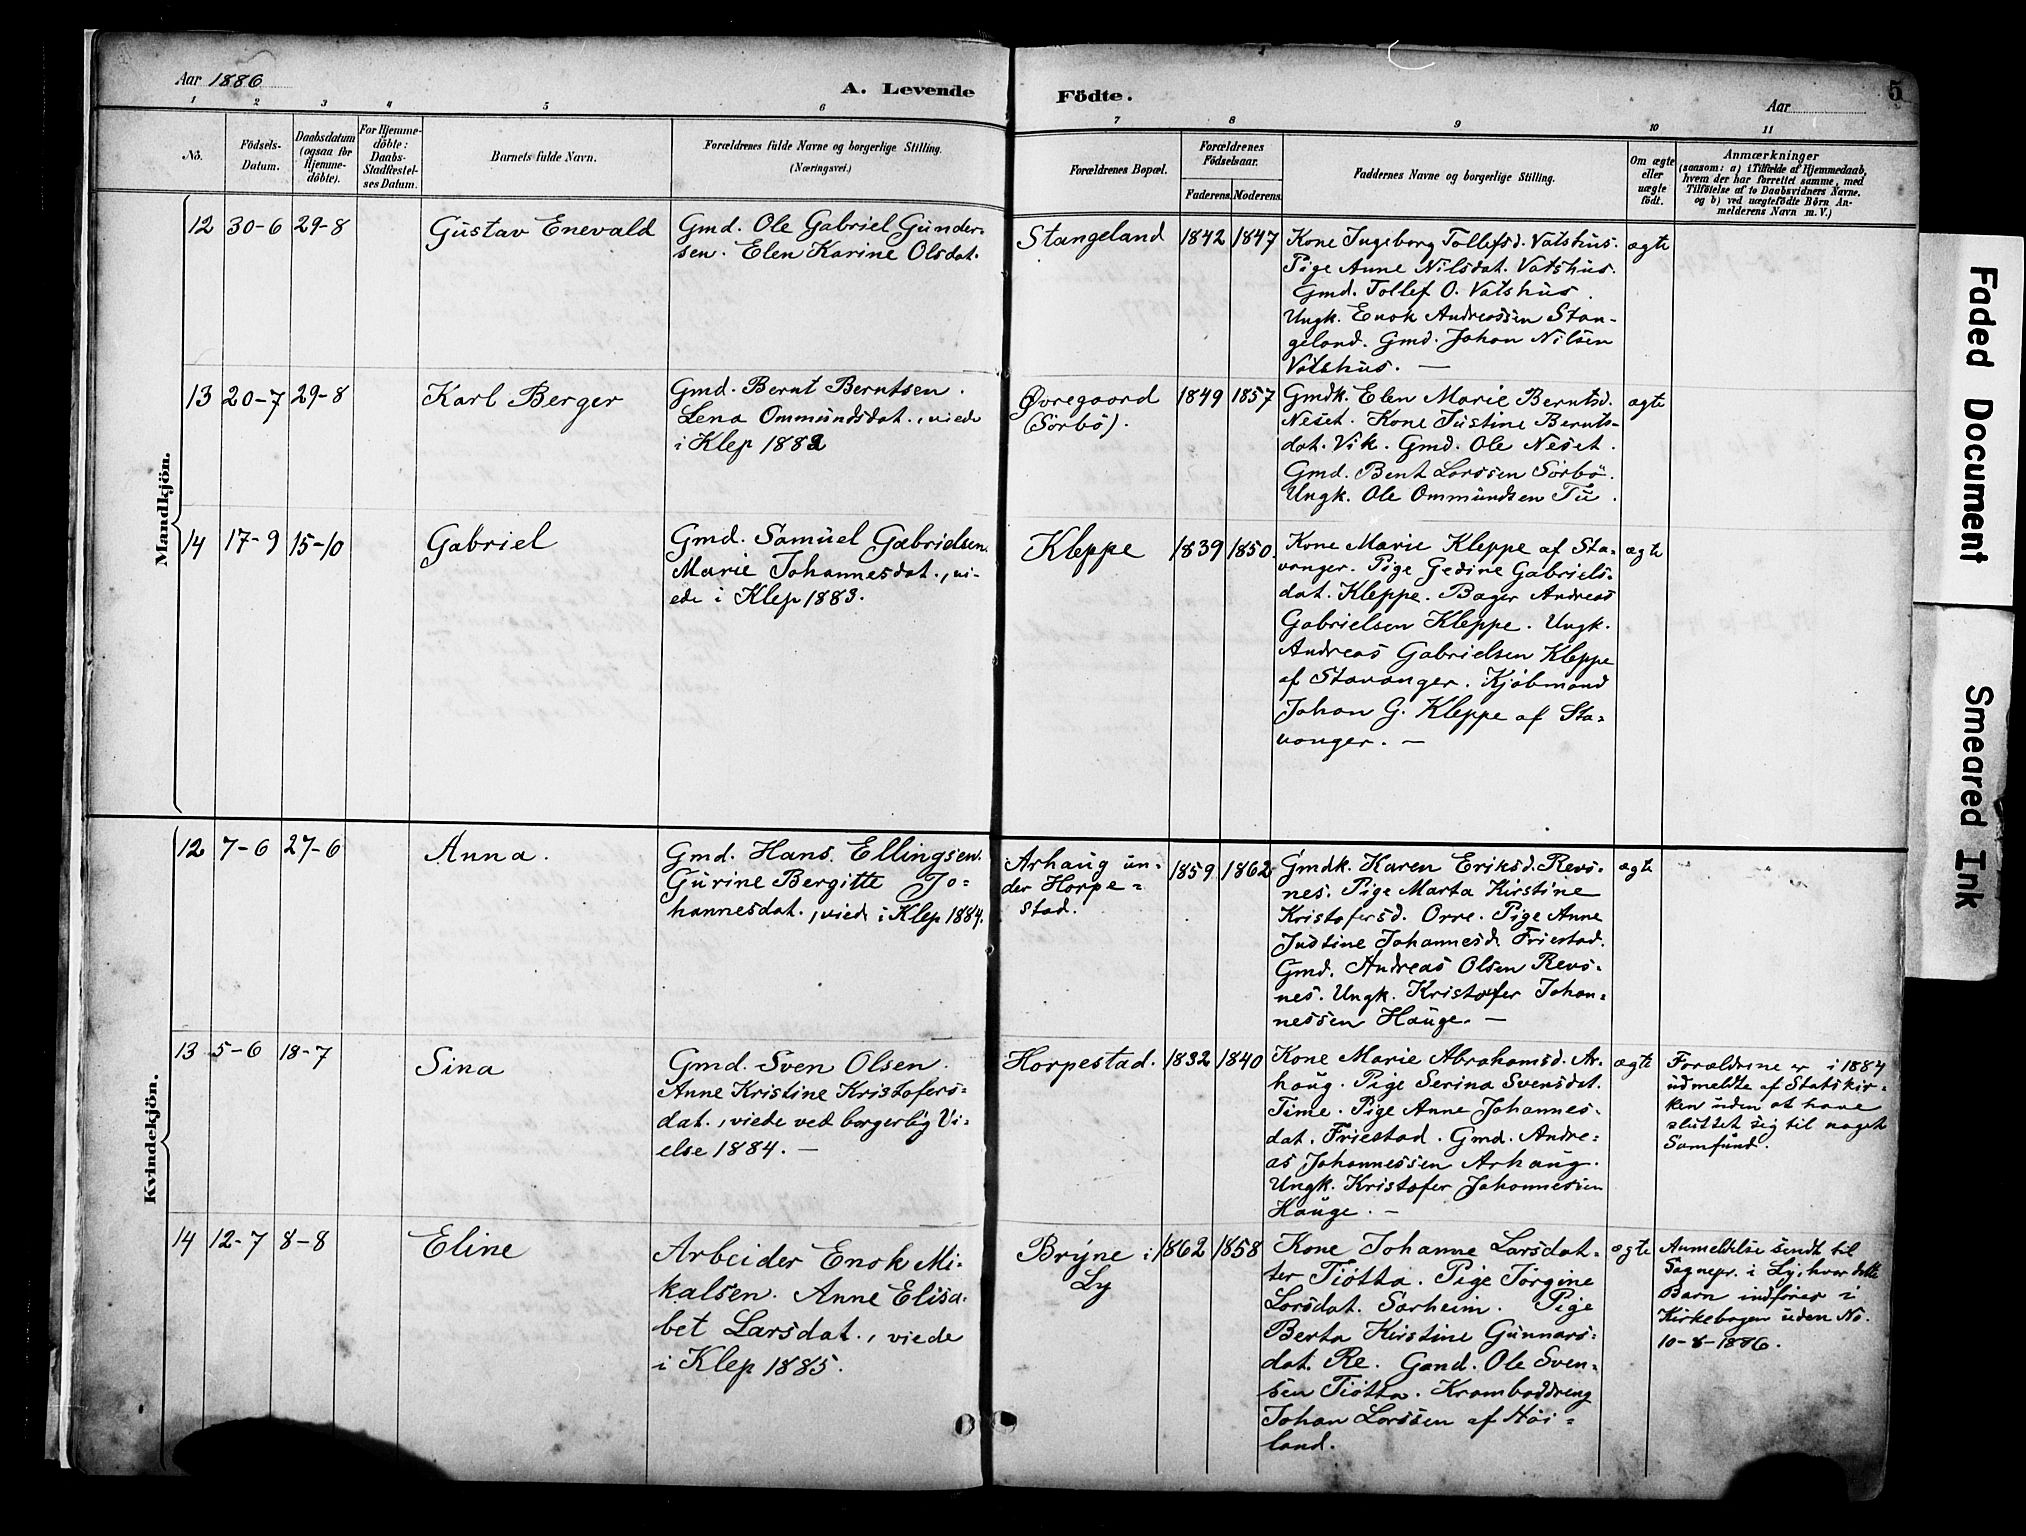 Aar 1886
A. Levende
Födte.
Aar
5
1 2 3 4 5 6 7 8 9 10 11
Nö.
Födsels-
Datum.
Daabsdatum
(ogsaa for
Hjemme-
döbte).
For Hjemme-
döbte:
Daabs-
Stadfæstel-
ses Datum.
Barnets fulde Navn.
Forældrenes fulde Navne og borgerlige Stilling.
(Næringsvei.)
Forældrenes Bopæl.
Forældrenes
Födselsaar.
Faderens. Moderens.
Faddernes Navne og borgerlige Stilling.
Om ægte
eller
uægte
födt.
Anmærkninger
(saasom: a) i Tilfælde af Hjemmedaab,
hvem der har forrettet samme, med
Tilföielse af to Daabsvidners Navne.
og b) ved uægtefödte Börn An-
melderens Navn m. V.)
Mandkjön.
12 30-6 29-8 Gustav Enevald
Gmd. Ole Gabriel Gunder-
sen. Elen Karine Olsdat.
Stangeland 1842 1847
Kone Ingeborg Tollefsd. Vatshus.
Pige Anne Nilsdat. Vatshus.
Gmd. Tollef O. Vatshus.
Ungk. Enok Andreassen Stan-
geland. Gmd. Johan Nilsen
Vatshus. —
ægte
13 20-7 29-8 Karl Berger
Gmd. Bernt Berntsen.
Lena Ommundsdat., viede
i Klep 1882
Øvregaard
(Sörbö).
1849 1857
Gmdk. Elen Marie Berntsd.
Neset. Kone Justine Bernts-
dat. Vik. Gmd. Ole Neset.
Gmd. Bent Larssen Sörbö.
Ungk. Ole Ommundsen Tu.
ægte
14 17-9 15-10 Gabriel
Gmd. Samuel Gabrielsen.
Marie Johannesdat., vi-
ede i Klep 1883.
Kleppe 1839 1850
Kone Marie Kleppe af Sta-
vanger. Pige Gedine Gabriels-
dat. Kleppe. Bager Andreas
Gabrielsen Kleppe. Ungk.
Andreas Gabrielsen Kleppe
af Stavanger. Kjöbmand
Johan G. Kleppe af Sta-
vanger. —
ægte
Kvindekjön.
12 7-6 27-6 Anna.
Gmd. Hans Ellingsen.
Gurine Bergitte Jo-
hannesdat., viede i Klep 1884.
Arhaug un-
der Horpe-
stad.
1859 1862
Gmdk. Karen Eriksd. Revs-
nes. Pige Marta Kirstine
Kristofersd. Orre. Pige Anne
Justine Johannesd. Friestad.
Gmd. Andreas Olsen Revs-
nes. Ungk. Kristofer Johan-
nessen Hauge. —
ægte
13 5-6 18-7 Sina
Gmd. Sven Olsen.
Anne Kristine Kristofers-
dat., viede ved borgerlig Vi-
else 1884. —
Horpestad. 1832 1840
Kone Marie Abrahamsd. Ar-
haug. Pige Serina Svensdat.
Time. Pige Anne Johannes-
dat. Friestad. Gmd. Andre-
as Johannessen Arhaug.
Ungk. Kristofer Johannessen
Hauge. —
ægte
Forældrene er i 1884
udmeldte af Statskir-
ken uden at have
sluttet sig til noget
Samfund.
14 12-7 8-8 Eline
Arbeider Enok Mi-
kalsen. Anne Elisa-
bet Larsdat., viede
i Klep 1885.
Bryne i
Ly
1862 1858
Kone Johanne Larsdat-
ter Tiötta. Pige Jörgine
Larsdat. Sarheim. Pige
Berta Kirstine Gunnars-
dat. Re. Gmd. Ole Sven-
sen Tiötta. Kramboddreng
Johan Larssen af Höi-
land.
ægte
Anmeldelse sendt til
Sognepr. i Ly, hvor dette
Barn indføres i
Kirkebogen uden No.
10-8-1886.
Faded Document
Smeared Ink